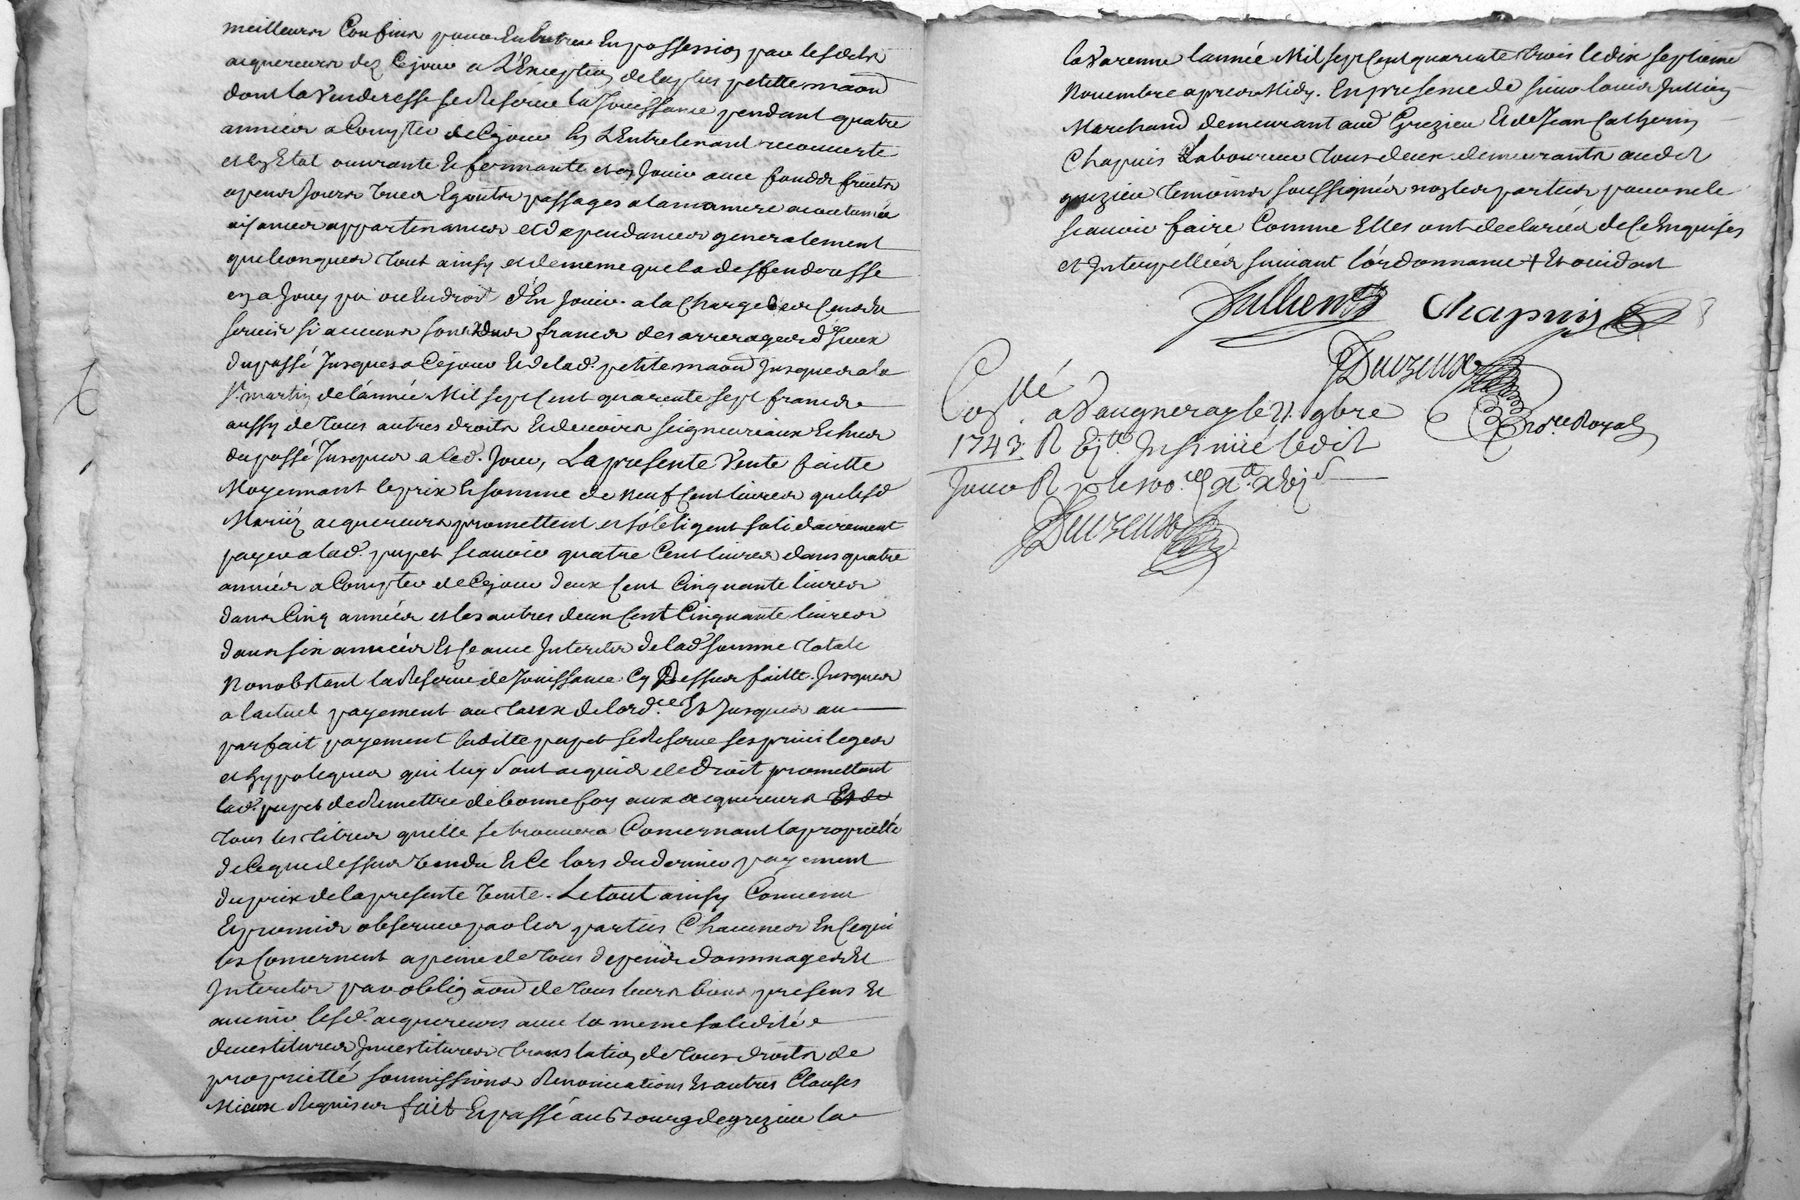 meilleurs Confins pour Entrer En possession par lesdits
acquereurs dez Cejour a L'Exception de la plus petitte maon
dont la Venderesse se Reserve la Jouissance pendant quatre
années a Compter de Cejour En L'Entretenant recouverte
et En Etat ouvrante Et fermante et En Jouir avec fonds fruits
apens Jours vues Egouts passages a la maniere acoutumée
aisances appartenances et dependances generalement
quelconques tout ainsy et de meme que la deffenderesse
en a Jouy pû ou En droit d'En Jouir a la Charge des Cens Et
servis si aucuns sont dus francs des arrerages d'Jceux
du passé Jusques a Cejour Et de lad. petite maon Jusques a la
St martin de l'année Mil sept Cent quarente sept francs
aussy de tous autres droits Et devoirs seigneuriaux Echus
du passé Jusques a led. Jour, La presente Vente faitte
Moyennant le prix Et somme de neuf Cent livres que lesd
Mariéz acquereurs promettent et s'obligent solidairement
payer a lad. pupet scauoir quatre Cent livres dans quatre
années a Compter de Cejour deux Cent Cinquante livres
dans Cinq années et les autres deux Cent Cinquante livres
dans six années Et Ce avec Interets de lad somme totale
Nonobstant la Reserve de Jouissance Cy Dessus faitte Jusques
a lactuel payement au taux de lord.ce Et Jusques au
parfait payement laditte pupet se Reserve ses privileges
et hypoteques qui luy sont acquis de Droit promettant
lad. pupet de Remettre de bonne foy aux acquereurs Et de
tous les titres quelle se trouvera Concernant la proprietté
de Ce que dessus vendu Et Ce lors du dernier payement
du prix de la presente vente. Le tout ainsy Convenu
Et promis observer par les parties Chacunes En Ce qui
les Concernent a peine de tous depens dommages Et
Interets par obligaon de tous leurs biens presens Et
avenir lesd. acquereurs avec la meme solidité
devestitures Jnvestitures translation de tous droits de
proprietté soumissions Renonciations Et autres Clauses
Mieux Requises fait Et passé au Bourg de grezieu la
la Varenne lannée Mil sept Cent quarente trois le dix septieme
Novembre apres Midy. En presence de sieur louis Jullien
Marchand demeurant aud Grezieu Et de Jean Catherin
Chapuis Laboureur tous deux demeurants audit
grezieu temoins soussignés non les parties pour ne le
scauoir faire Comme Elles ont declarées de Ce Enquises
et Interpellées suivant l'ordonnance +
Jullien Chapuis
Duvzeux
no.re Royal
Con.llé a Vaugneray le 21 9bre
1743 R Insinüé ledit
Jour R
Duvzeux